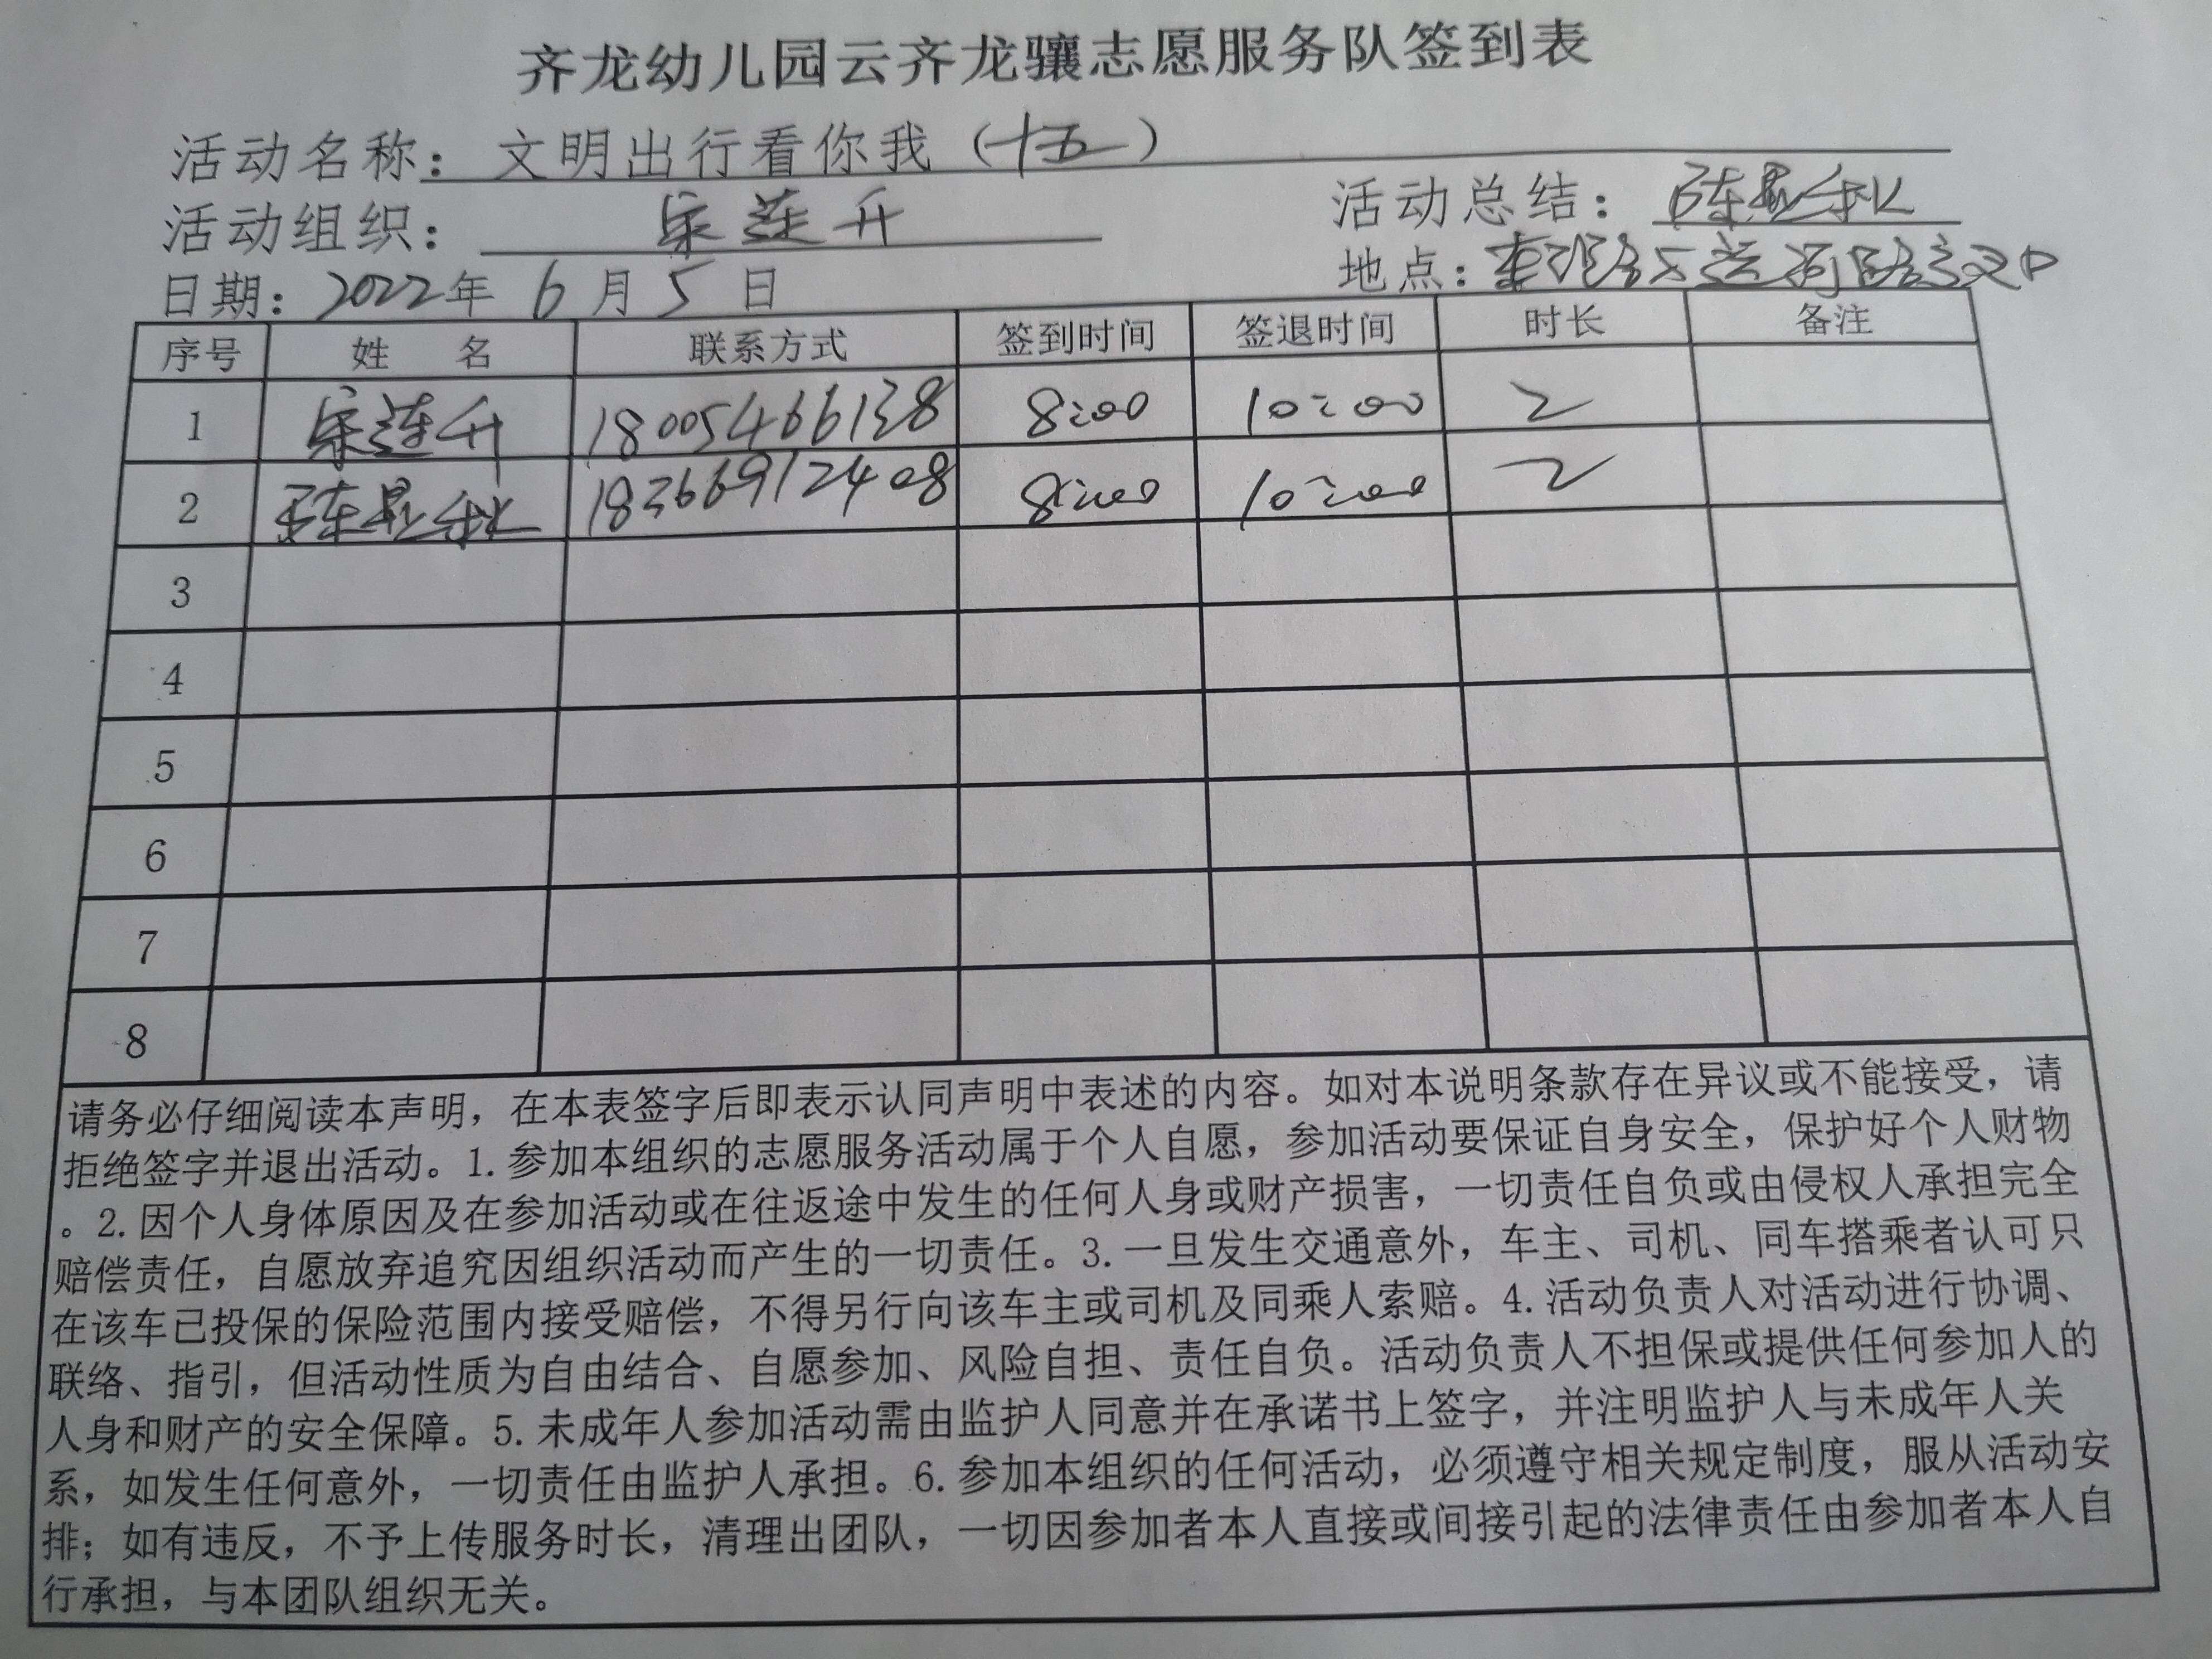 齐龙幼儿园云齐龙骧志愿服务队签到表
活动名称：文明出行看你我（十五）
活动组织：宋莲升 活动总结：陈显秋
日期：2022年6月5日 地点：路与兰河路交叉口
序号 姓名 联系方式 签到时间 签退时间 时长 备注
1 宋莲升 18005466138 8:00 10:00 2
2 陈显秋 18366912408 8:00 10:00 2
3
4
5
6
7
8
请务必仔细阅读本声明，在本表签字后即表示认同声明中表述的内容。如对本说明条款存在异议或不能接受，请
拒绝签字并退出活动。1.参加本组织的志愿服务活动属于个人自愿，参加活动要保证自身安全，保护好个人财物
。2.因个人身体原因及在参加活动或在往返途中发生的任何人身或财产损害，一切责任自负或由侵权人承担完全
赔偿责任，自愿放弃追究因组织活动而产生的一切责任。3.一旦发生交通意外，车主、司机、同车搭乘者认可只
在该车已投保的保险范围内接受赔偿，不得另行向该车主或司机及同乘人索赔。4.活动负责人对活动进行协调、
联络、指引，但活动性质为自由结合、自愿参加、风险自担、责任自负。活动负责人不担保或提供任何参加人的
人身和财产的安全保障。5.未成年人参加活动需由监护人同意并在承诺书上签字，并注明监护人与未成年人关
系，如发生任何意外，一切责任由监护人承担。6.参加本组织的任何活动，必须遵守相关规定制度，服从活动安
排；如有违反，不予上传服务时长，清理出团队，一切因参加者本人直接或间接引起的法律责任由参加者本人自
行承担，与本团队组织无关。